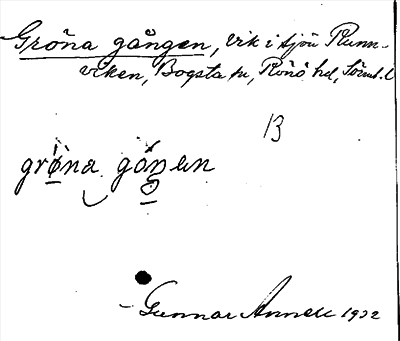 Gröna gången, Vik i sjön Runn-
viken, Bogsta sn, Rönö hd, Söml. l
B
grøna gåŋen
Gunnar Annell 1932